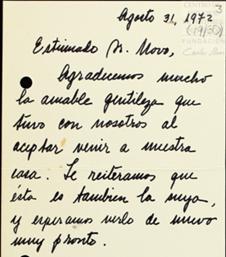 Agosto 31, 1972
3
Estimado Sr. Novo,
Agradecemos mucho
la amable gentileza que
tuvo con nosotros al
aceptar venir a nuestra
casa. Le reiteramos que
ésta es tambien la suya,
y esperamos verlo de nuevo
muy pronto.